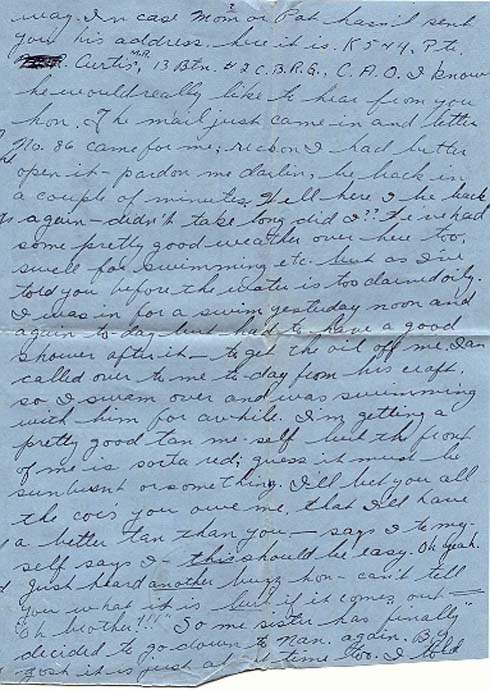 2
way. In case Mom or Pat hasn't sent
you his address. here it is. K544, Pte.
Curtis, M.R. 13 Btn. #2 C.B.R.G., C.A.O. I know
he would really like to hear from you
hon. The mail just came in and letter
No. 86 came for me; reckon I had better
open it - pardon me darlin, be back in
a couple of minutes. Well here I be back
again - didn't take long did I?? We've had
some pretty good weather over here too,
swell for swimming etc. but as I've
told you before the water is too darned oily.
I was in for a swim yesterday noon and
again to-day but had to have a good
shower after it - to get the oil off me. Ian
called over to me to-day from his craft,
so I swam over and was swimming
with him for awhile. I'm getting a
pretty good tan me-self but the front
of me is sorta red; guess it must be
sunburnt or something. I'll bet you all
the you owe me, that I'll have
a better tan than you - says I to my-
self says I - this should be easy. Oh yeah.
Just heard another buzz hon - can't tell
you what it is but if it comes out -
"Oh brother!!!" So me sister has "finally"
decided to go down to Nan. again. By
gosh it is just time too. I told